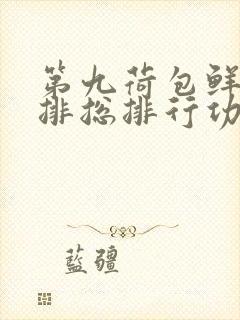 第九荷包鲜
排总排行功
藍疆